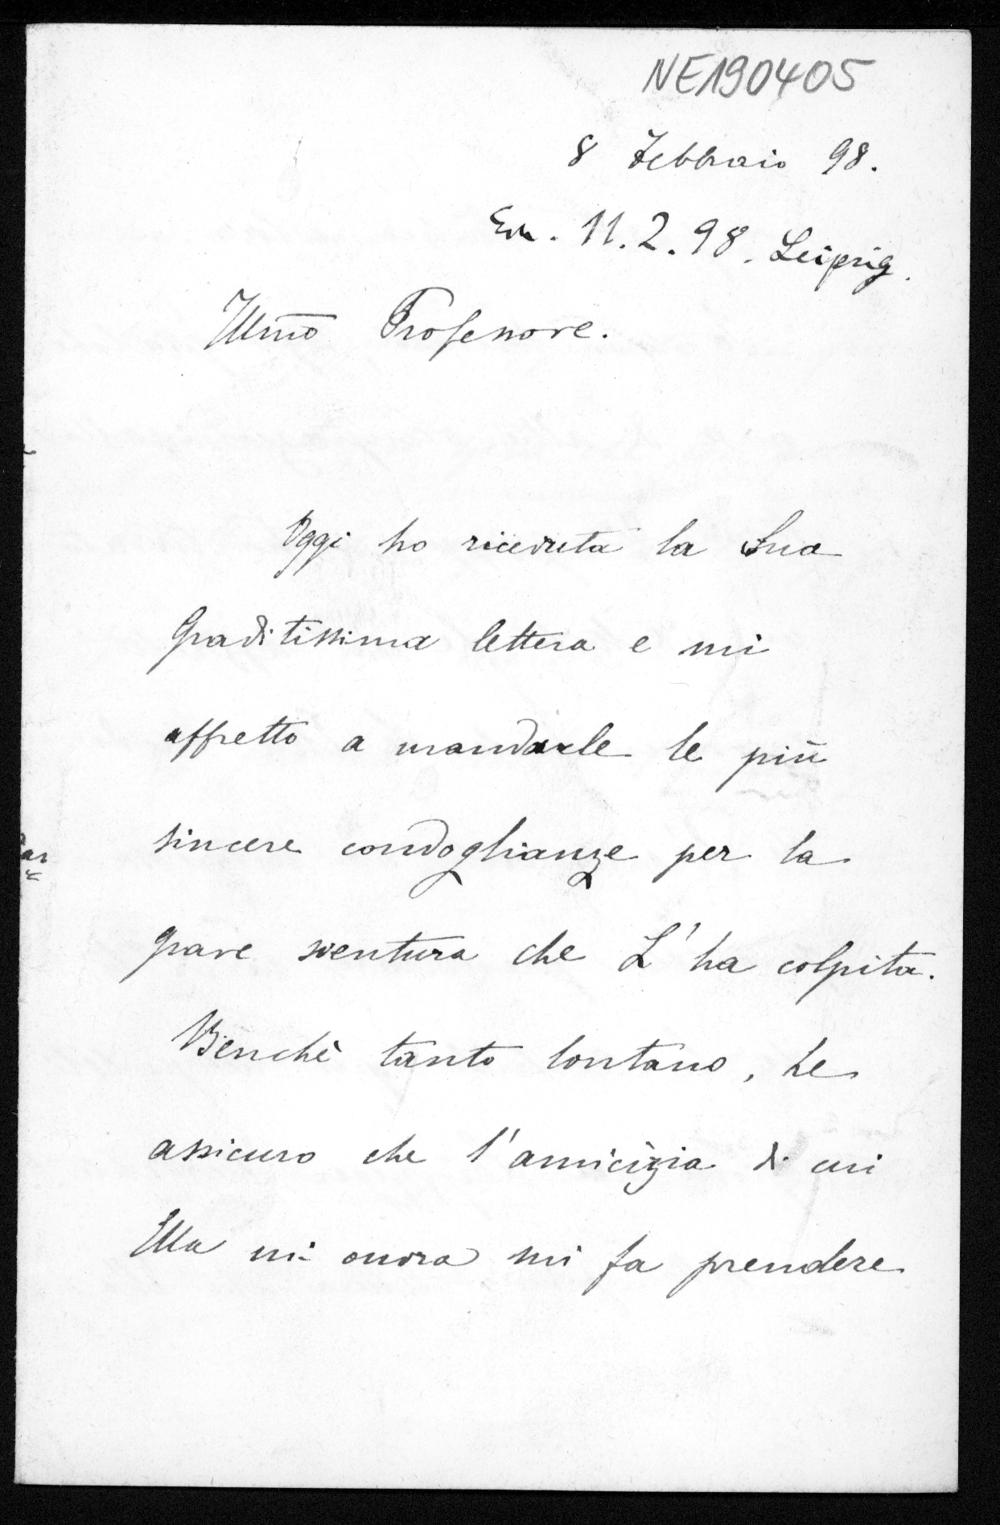 NE190405
8 Febbraio 98.
Erh. 11.2.98. Leipzig.
Illmo Professore.
Oggi ho ricevuta la Sua
Graditissima lettera e mi
affretto a mandarle le più
sincere condoglianze per la
grave sventura che L'ha colpita.
Benchè tanto lontano, Le
assicuro che l'amicizia di cui
Ella mi onora mi fa prendere